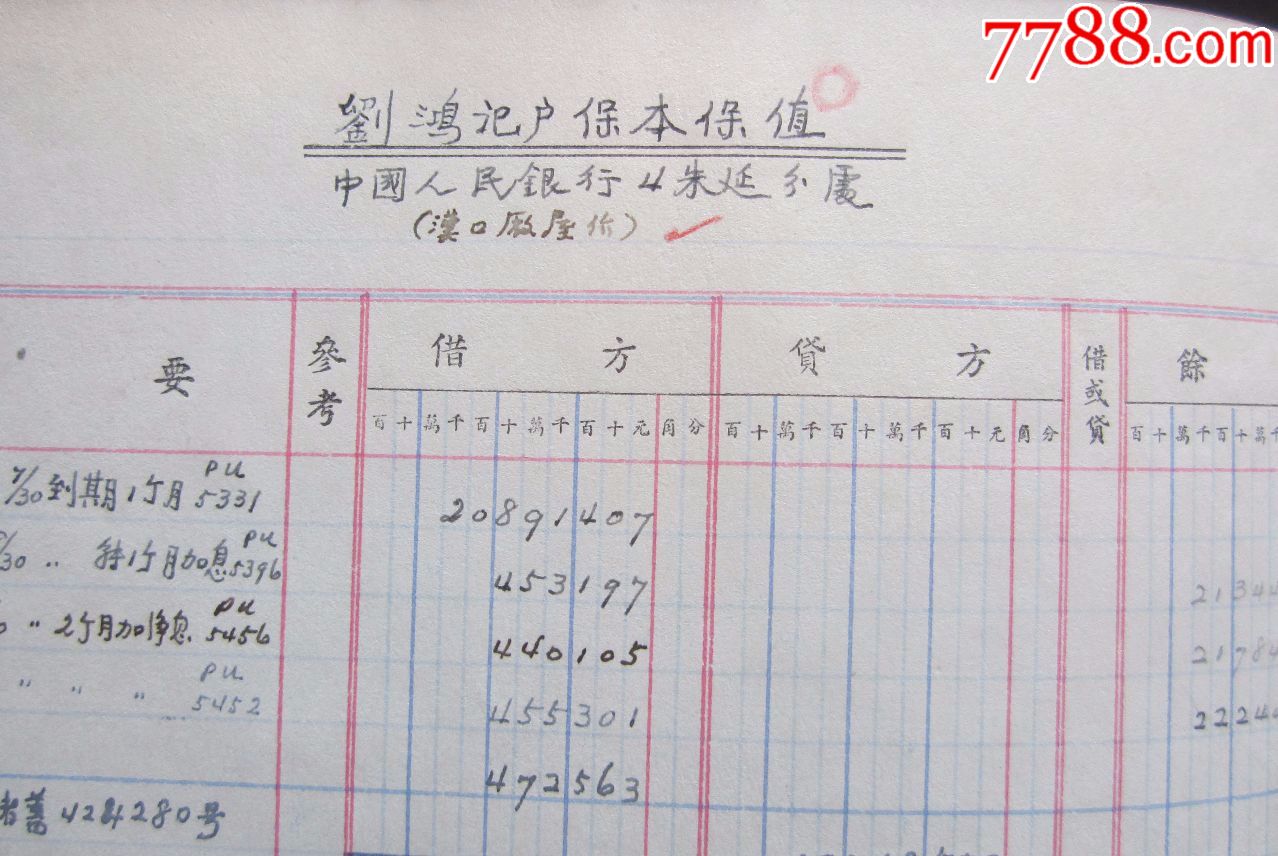 7788.com
劉鴻记户保本保值
中國人民銀行 朱延分處
(漢口廠屋价)
要 參考 借方 貸方 借或貸 餘
百十萬千百十萬千百十元角分 百十萬千百十萬千百十元角分 百十萬千百十萬千
7/30到期1个月 PU 5331 20891407
/30 〃 转1个月加息 PU 5396 453197 21344
〃 2个月加净息 PU 5456 440105 21784
〃 〃 〃 PU 5452 455301 2224
472563
424280号